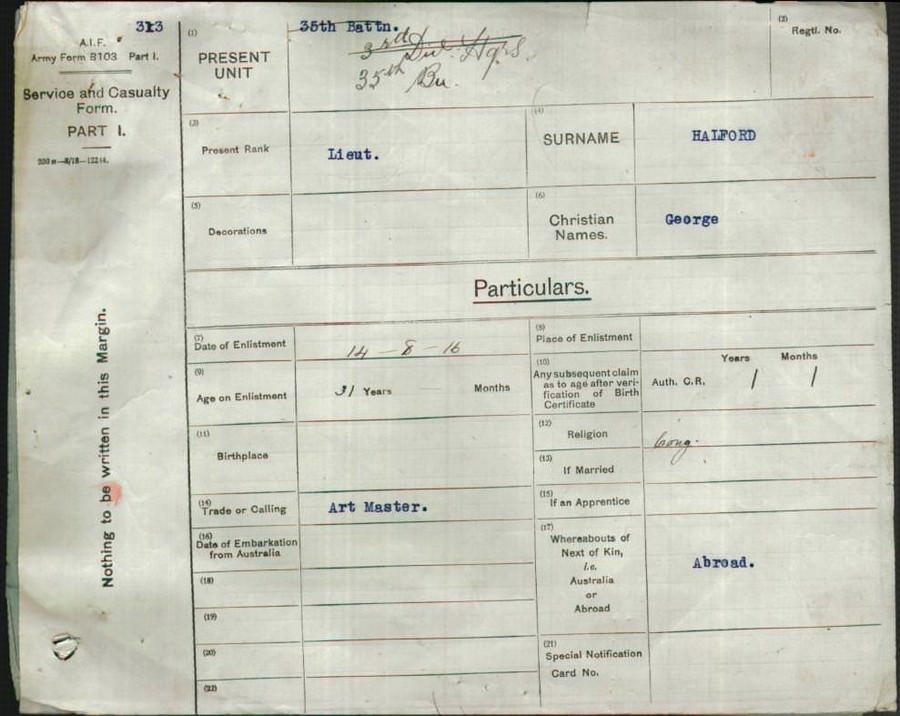 313
A.I.F.
Army Form B103 Part I.
Service and Casualty
Form.
PART I.
200 m—8/18—12244.
Nothing to be written in this Margin.
(1)
PRESENT
UNIT
35th Battn.
3rd Div. Hqrs.
35th Bn.
(2)
Regtl. No.
(3)
Present Rank
Lieut.
(4)
SURNAME
HALFORD
(5)
Decorations
(6)
Christian
Names.
George
Particulars.
(7)
Date of Enlistment
14 – 8 – 16
(8)
Place of Enlistment
(9)
Age on Enlistment
31 Years — Months
(10)
Any subsequent claim
as to age after veri-
fication of Birth
Certificate
Years Months
Auth. C.R. / /
(11)
Birthplace
(12)
Religion
Cong.
(13)
If Married
(14)
Trade or Calling
Art Master.
(15)
If an Apprentice
(16)
Date of Embarkation
from Australia
(17)
Whereabouts of
Next of Kin,
i.e.
Australia
or
Abroad
Abroad.
(18)
(19)
(20)
(21)
Special Notification
Card No.
(22)